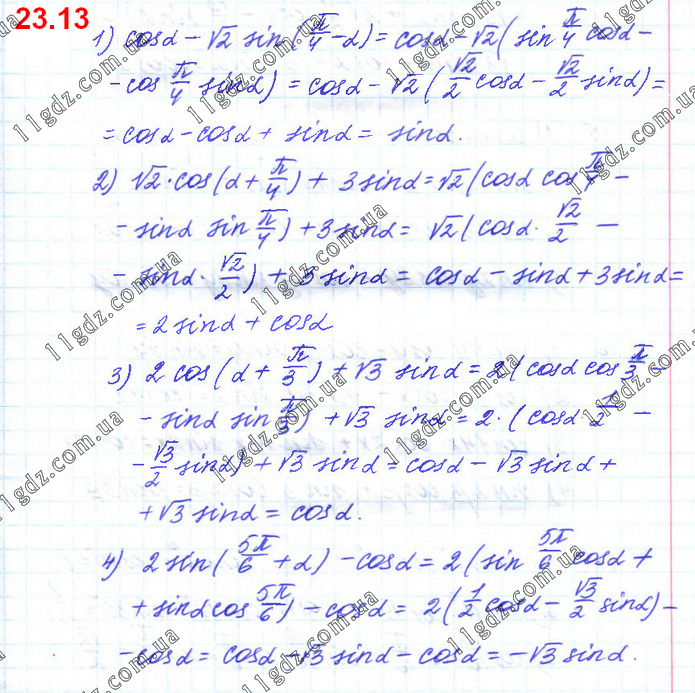 23.13
1) cosα − √2 sin(π/4 − α) = cosα − √2(sin π/4 cosα −
− cos π/4 sinα) = cosα − √2(√2/2 cosα − √2/2 sinα) =
= cosα − cosα + sinα = sinα.
2) √2·cos(α + π/4) + 3sinα = √2(cosα cos π/4 −
− sinα sin π/4) + 3sinα = √2(cosα·√2/2 −
− sinα·√2/2) + 3sinα = cosα − sinα + 3sinα =
= 2sinα + cosα
3) 2cos(α + π/3) + √3 sinα = 2(cosα cos π/3 −
− sinα sin π/3) + √3 sinα = 2·(cosα·1/2 −
− √3/2 sinα) + √3 sinα = cosα − √3 sinα +
+ √3 sinα = cosα.
4) 2sin(5π/6 + α) − cosα = 2(sin 5π/6 cosα +
+ sinα cos 5π/6) − cosα = 2(1/2 cosα − √3/2 sinα) −
− cosα = cosα − √3 sinα − cosα = −√3 sinα.
11gdz.com.ua